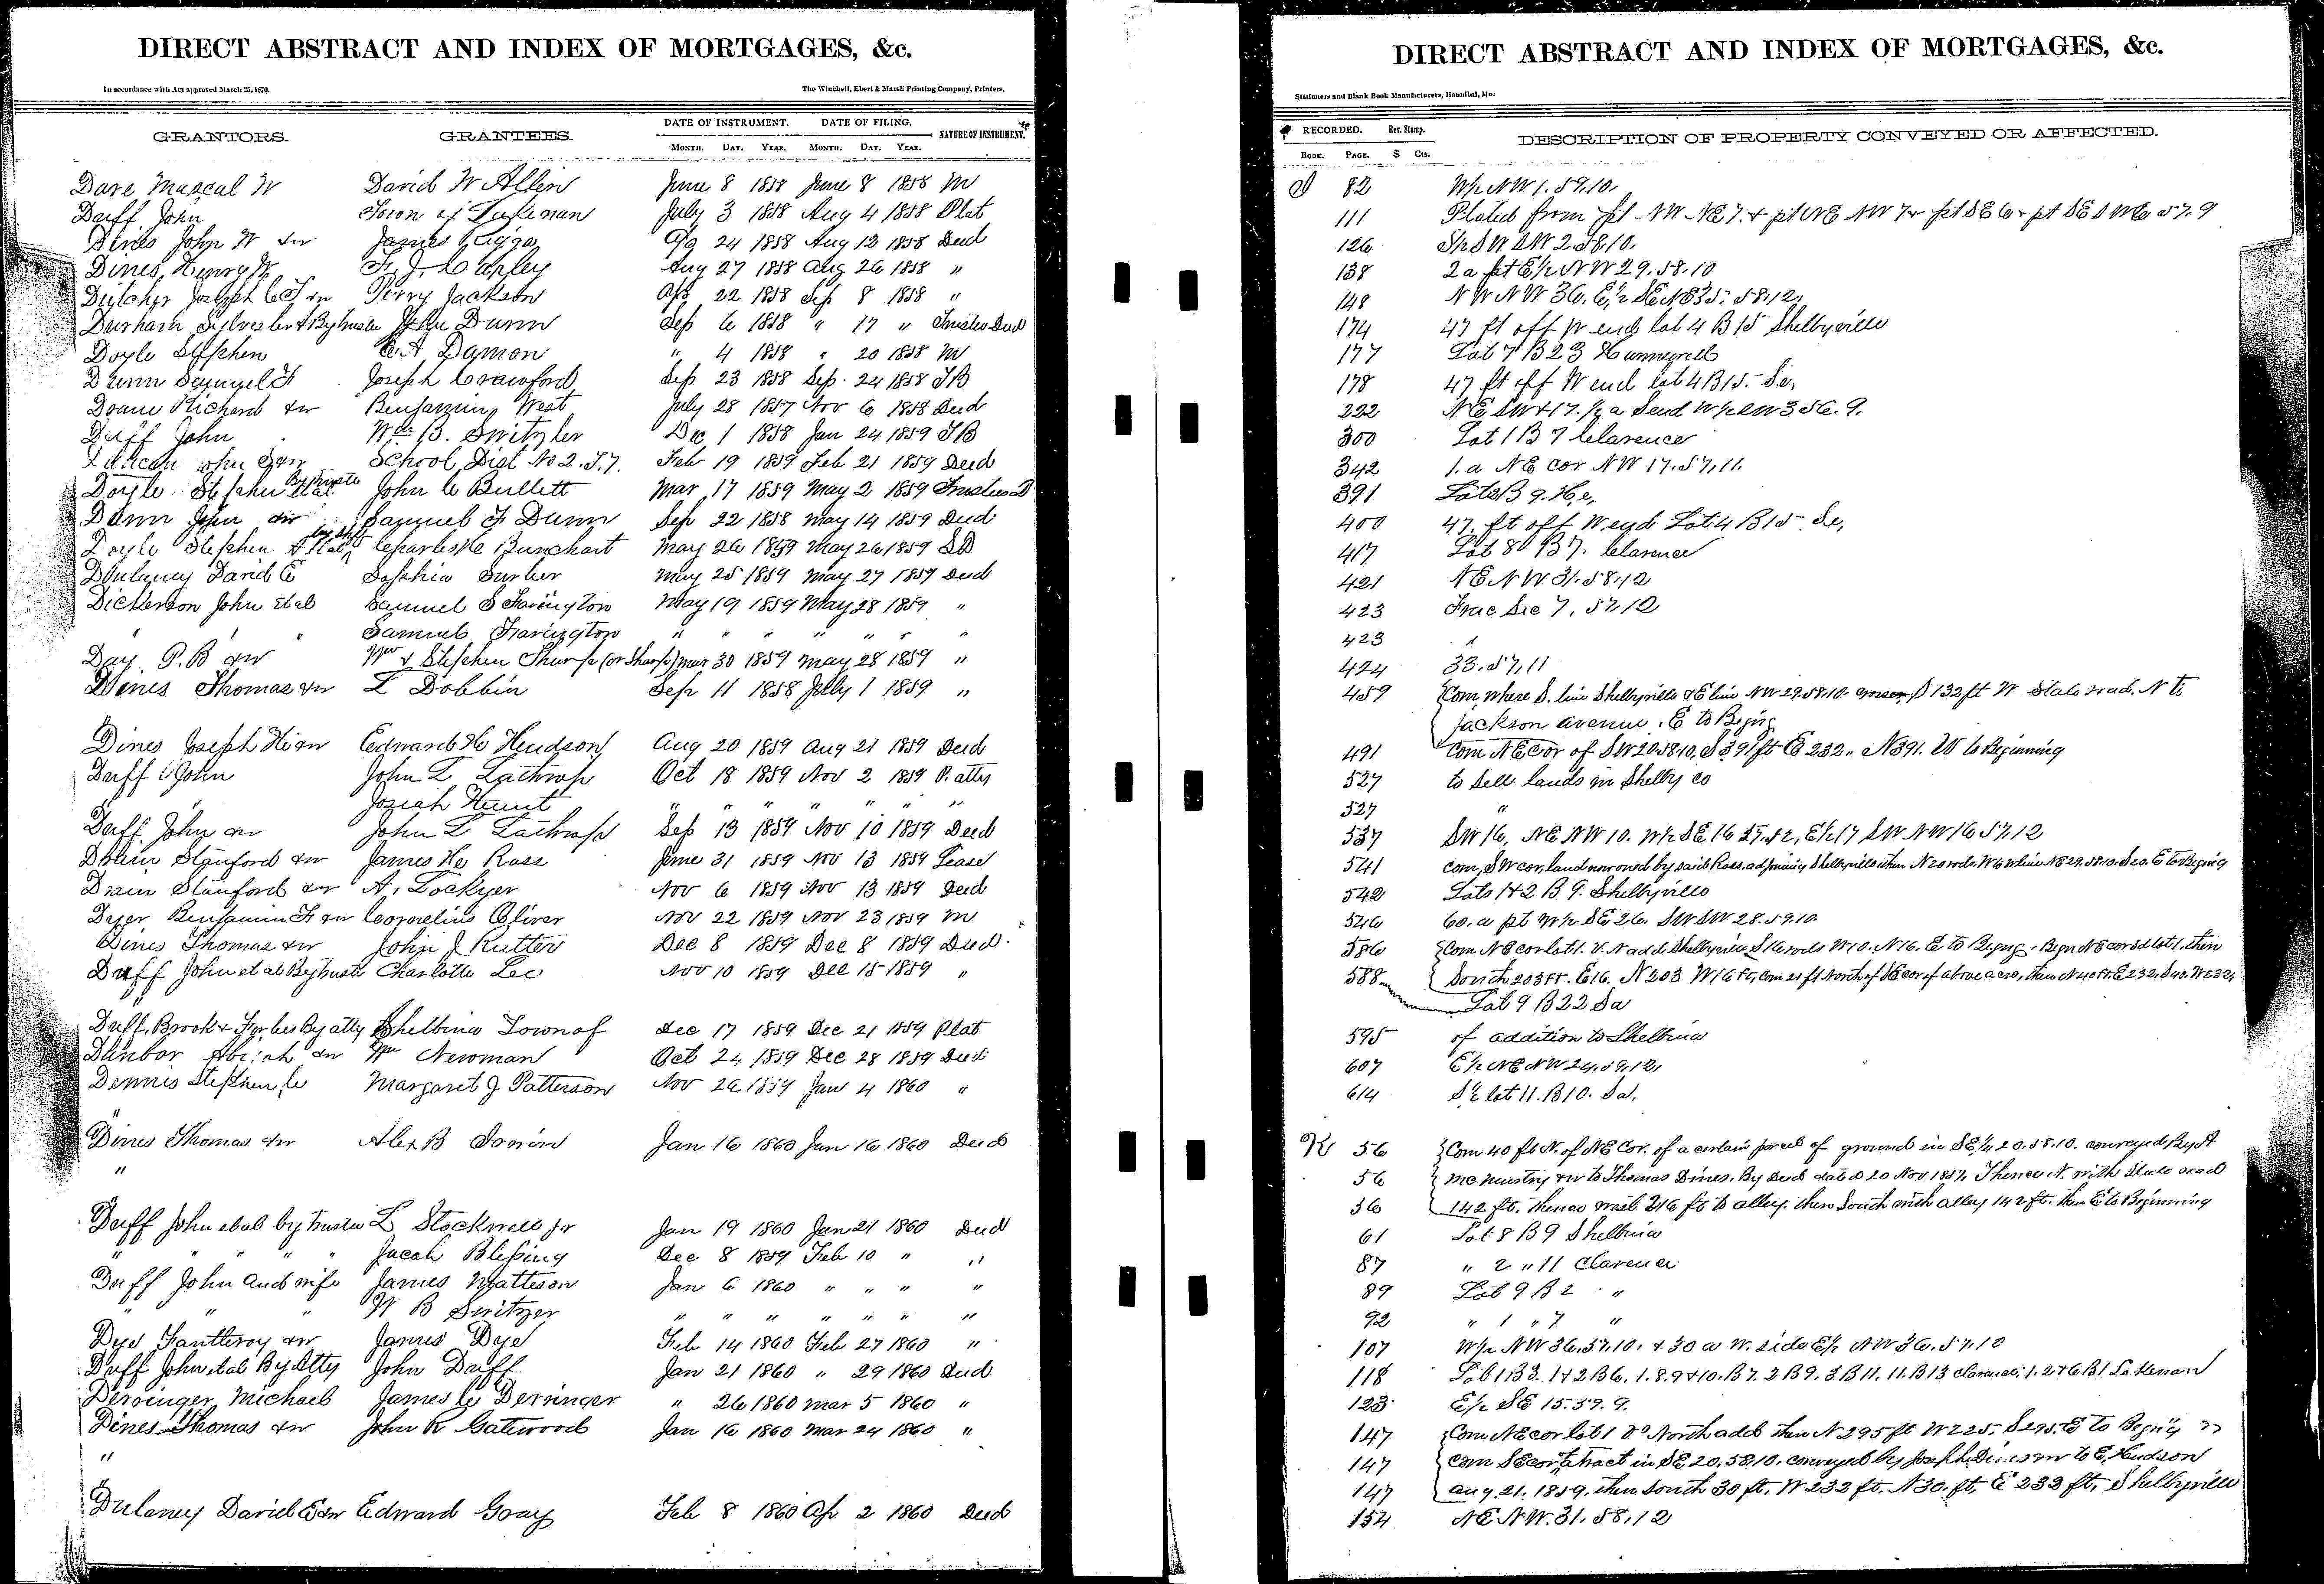 DIRECT ABSTRACT AND INDEX OF MORTGAGES, &c.
In accordance with Act approved March 25, 1870. The Winchell, Ebert & Marsh Printing Company, Printers,
DATE OF INSTRUMENT. DATE OF FILING.
GRANTORS. GRANTEES. NATURE OF INSTRUMENT.
MONTH. DAY. YEAR. MONTH. DAY. YEAR.
Dare W David W Allen June 8 1858 June 8 1858 M
Duff John Town of Lakenan July 3 1858 Aug 4 1858 Plat
Dines John W &w James 24 1858 Aug 12 1858 Deed
Dines, Henry Aug 27 1858 Aug 26 1858 "
Joseph Perry Jackson Apr 22 1858 Sep 8 1858 "
Durham Sylvester & By trustee John Dunn Sep 6 1858 " 17 " Trustes Deed
Doyle Stephen Damon " 4 1858 " 20 1858 M
Dunn Samuel F Joseph Crawford Sep 23 1858 Sep. 24 1858 TB
Doane Richard &w Benjamin West July 28 1857 Nov 6 1858 Deed
Duff John Wm B. Switzler Dec 1 1858 Jan 24 1859 TB
Duncan John &w School Dist No 2. T.7. Feb 19 1859 Feb 21 1859 Deed
Doyle Stephen et al By trustee John C Bullett Mar 17 1859 May 2 1859 Trustees D
Dunn John &w Samuel F Dunn Sep 22 1858 May 14 1859 Deed
Doyle Stephen et al Charles Bunchart May 26 1859 May 26 1859
Dulaney David E Sophia Surber May 25 1859 May 27 1859 Deed
Dickerson John et al Samuel S Farington May 19 1859 May 28 1859 "
" " " Samuel Farington " " " " " " "
Day P.B &w Wm & Stephen Tharp (or Sharp) Mar 30 1859 May 28 1859 "
Dines Thomas &w L Dobbin Sep 11 1858 July 1 1859 "
Dines Joseph H &w Edward H Hudson Aug 20 1859 Aug 21 1859 Deed
Duff John John L Lathrop Oct 18 1859 Nov 2 1859 P. atty
" Josiah Hunt " " " " " " "
Duff John &w John L Lathrop Sep 13 1859 Nov 10 1859 Deed
Drain Stanford &w James H Ross June 31 1859 Nov 13 1859 Lease
Drain Stanford &w A. Lockyer Nov 6 1859 Nov 13 1859 Deed
Dyer Benjamin F &w Cornelius Oliver Nov 22 1859 Nov 23 1859 M
Dines Thomas &w John J Rutter Dec 8 1859 Dec 8 1859 Deed.
Duff John et al By trustee Charlotte Lee Nov 10 1859 Dec 15 1859 "
Duff, Brook & Forbes By atty Shelbina Town of Dec 17 1859 Dec 21 1859 Plat
Dunbar Abijah &w Wm Newman Oct 24 1859 Dec 28 1859 Deed
Dennis Stephen C Margaret J Patterson Nov 26 1859 Jan 4 1860 "
Dines Thomas &w Alex B Jan 16 1860 Jan 16 1860 Deed
"
Duff John et al by trustee L Stockwell Jr Jan 19 1860 Jan 21 1860 Deed
" " " " Jacob Blessing Dec 8 1859 Feb 10 " "
Duff John and wife James Matteson Jan 6 1860 " " " "
" " " W B Switzer " " " " " " "
Dye Fantleroy &w James Dye Feb 14 1860 Feb 27 1860 "
Duff John et al By Atty John Duff Jan 21 1860 " 29 1860 Deed
Derringer Michael James C Derringer " 26 1860 Mar 5 1860 "
Dines Thomas &w John R Gatewood Jan 16 1860 Mar 24 1860 "
"
Dulaney David E &w Edward Gray Feb 8 1860 Ap 2 1860 Deed
DIRECT ABSTRACT AND INDEX OF MORTGAGES, &c.
Stationers and Blank Book Manufacturers, Hannibal, Mo.
RECORDED. Rev. Stamp. DESCRIPTION OF PROPERTY CONVEYED OR AFFECTED.
BOOK. PAGE. $ Cts.
J 82 W½ NW 1. 59.10.
111 Plated from pt NW NE 7. & pt NE NW 7 & pt SE 6 & pt SE SW 6 57.9
126 S½ SW SW 2. 58.10.
138 2 a pt E½ NW 29. 58.10
148 NW NW 36. E½ SE NE 35. 58.12.
174 47 ft off W end lot 4 B 15 Shelbyville
177 Lot 7 B 23 Hunnewell
178 47 ft off W end lot 4 B 15. Se.
222 NE SW & 17. ½ a S end W½ SW 3 56. 9.
300 Lot 1 B 7 Clarence
342 1. a NE cor NW 17. 57. 11.
391 B 9. He.
400 47. ft off W end Lot 4 B 15 Se,
417 Lot 8 B 7. Clarence
421 NE NW 31. 58.12
423 Frac Sec 7. 57.12
423 "
424 33. 57. 11
459 Com. where S. line Shelbyville & E line NW 29.58.10 crosses, S 132 ft W State road. N to
Jackson avenue. E to Begng
491 Com NE cor of SW 20.58.10, S 391 ft E 232.. N 391. W to Beginning
527 to sell lands in Shelby co
527 "
537 SW 16, NE NW 10. W½ SE 16 57.12, E½ 17 SW NW 16 57.12
541 com, SW cor, land now owned by said Ross. adjoining Shelbyville then N 20 rods. W to W line NE 29.58.10. S 20. E to Begng
542 Lots 1 & 2 B 9. Shelbyville
546 60. a pt W½ SE 26. SW SW 28. 59.10
586 Com NE cor lot 1. V. N add Shelbyville S 16 rods W 10. N 16. E to Begng. Begn NE cor sd lot 1. then
588 South 203 ft. E 16. N 203 W 16 ft, Com 21 ft North of SE cor of above acre, then N 40 ft. E 232. S 40. W 232,
Lot 9 B 22 Sa
595 of addition to Shelbina
607 E½ NE NW 24. 59. 12.
614 S½ lot 11. B 10. Sa.
K 56 Com 40 ft N. of NE Cor. of a certain parcel of ground in SE ¼ 20. 58. 10. conveyed By A
56 McMurtry &w to Thomas Dines. By Deed dated 20 Nov 1857. Thence N. with State road
56 142 ft. thence west 216 ft to alley. then South with alley 142 ft. then E to Beginning
61 Lot 8 B 9 Shelbina
87 " 2 " 11 Clarence
89 Lot 9 B 2 "
92 " 1 " 7 "
107 W½ NW 36. 57.10. & 30 a W. side E½ NW 36. 57.10
118 Lot 1 B 3. 1 & 2 B 6. 1. 8. 9 & 10. B 7. 2 B 9. 3 B 11. 11. B 13 Clarence; 1. 2 & 6 B 1 Lakenan
123 E½ SE 15. 59. 9.
147 Com NE cor lot 1 V North add then N 295 ft W 225. S 295. E to Begn'g
147 Com SE cor tract in SE 20. 58.10. conveyed by Joseph Dines &w to E. Hudson
147 Aug. 21. 1859. then South 30 ft. W 232 ft. N 30. ft, E 232 ft, Shelbyville
154 NE NW. 31. 58. 12